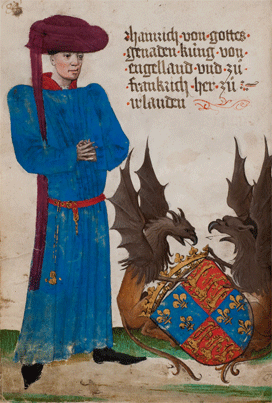 ·hainrich·von·gottes·
genaden·küng·von·
engelland·vnd·zů·
franckrich·her·zů·
·irlanden